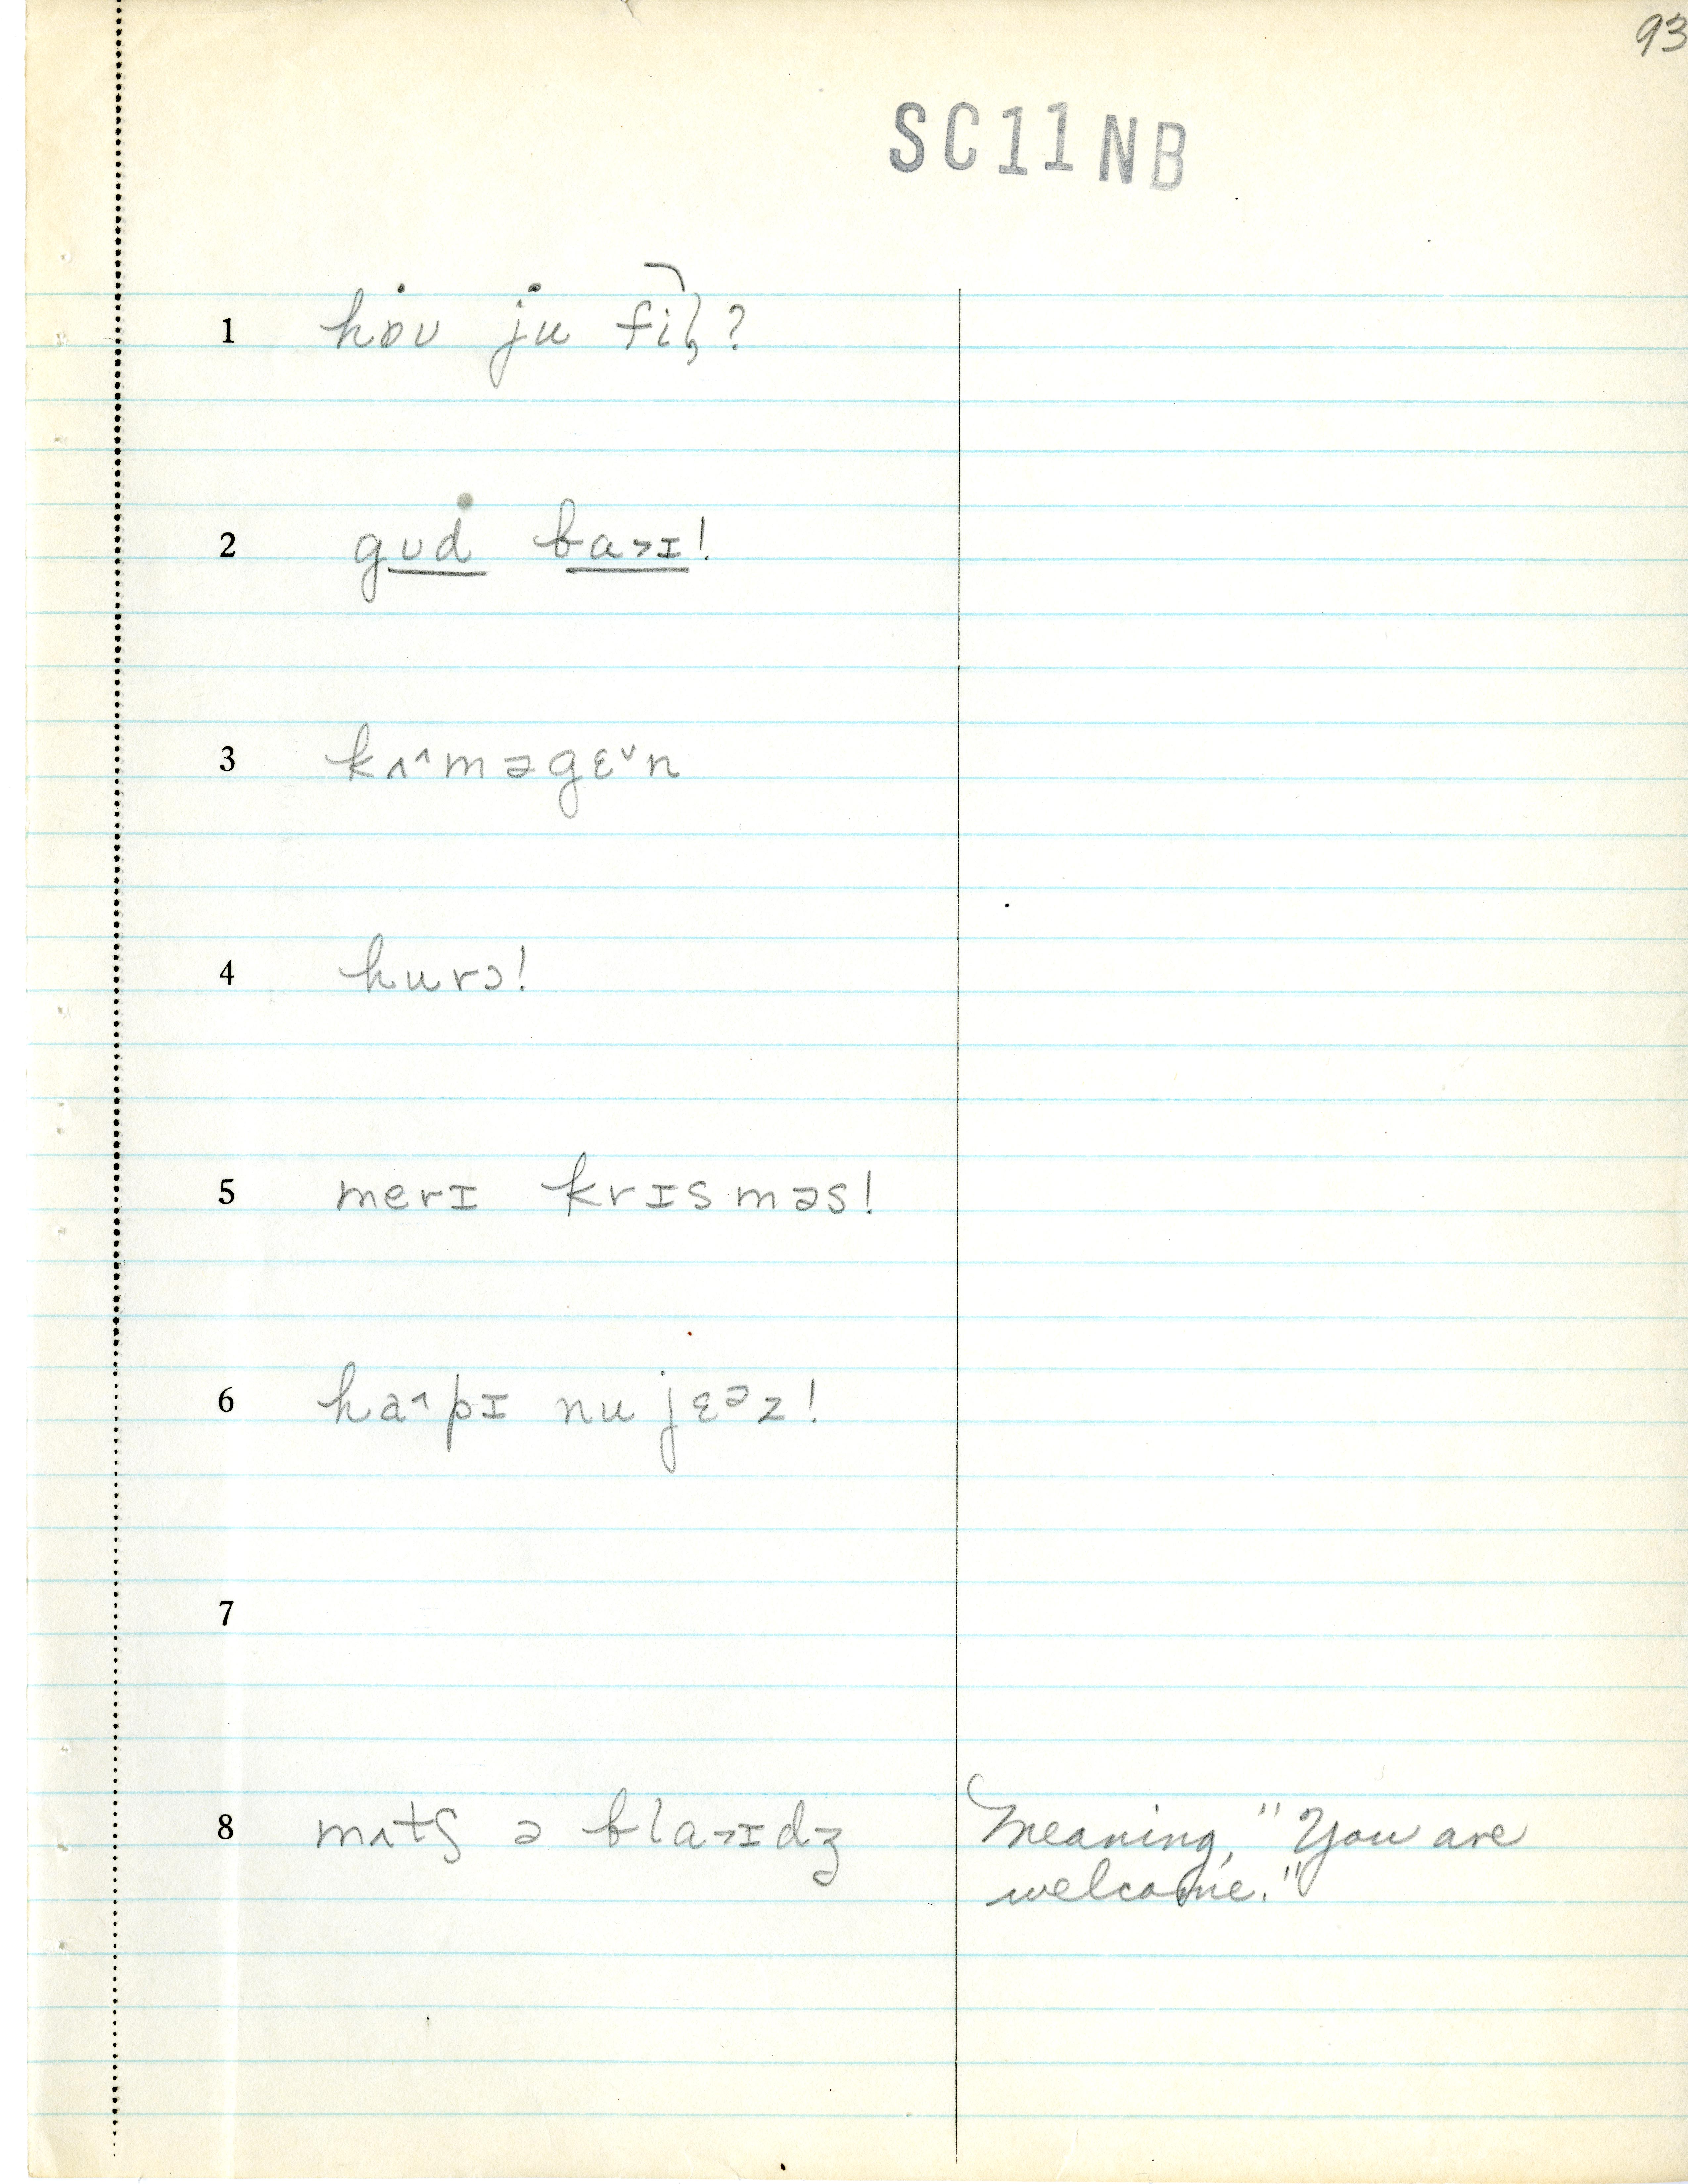 93
SC11NB
1 hɒʊ ju fil̥?
2 gʊd ba˃ɪ!
3 kʌ˄məgɛ˅n
4 hurɔ!
5 merɪ krɪsməs!
6 ha˄pɪ nu jɛᵊz!
7
8 mʌtʃ ə bla˃ɪdʒ Meaning, "You are
welcome."